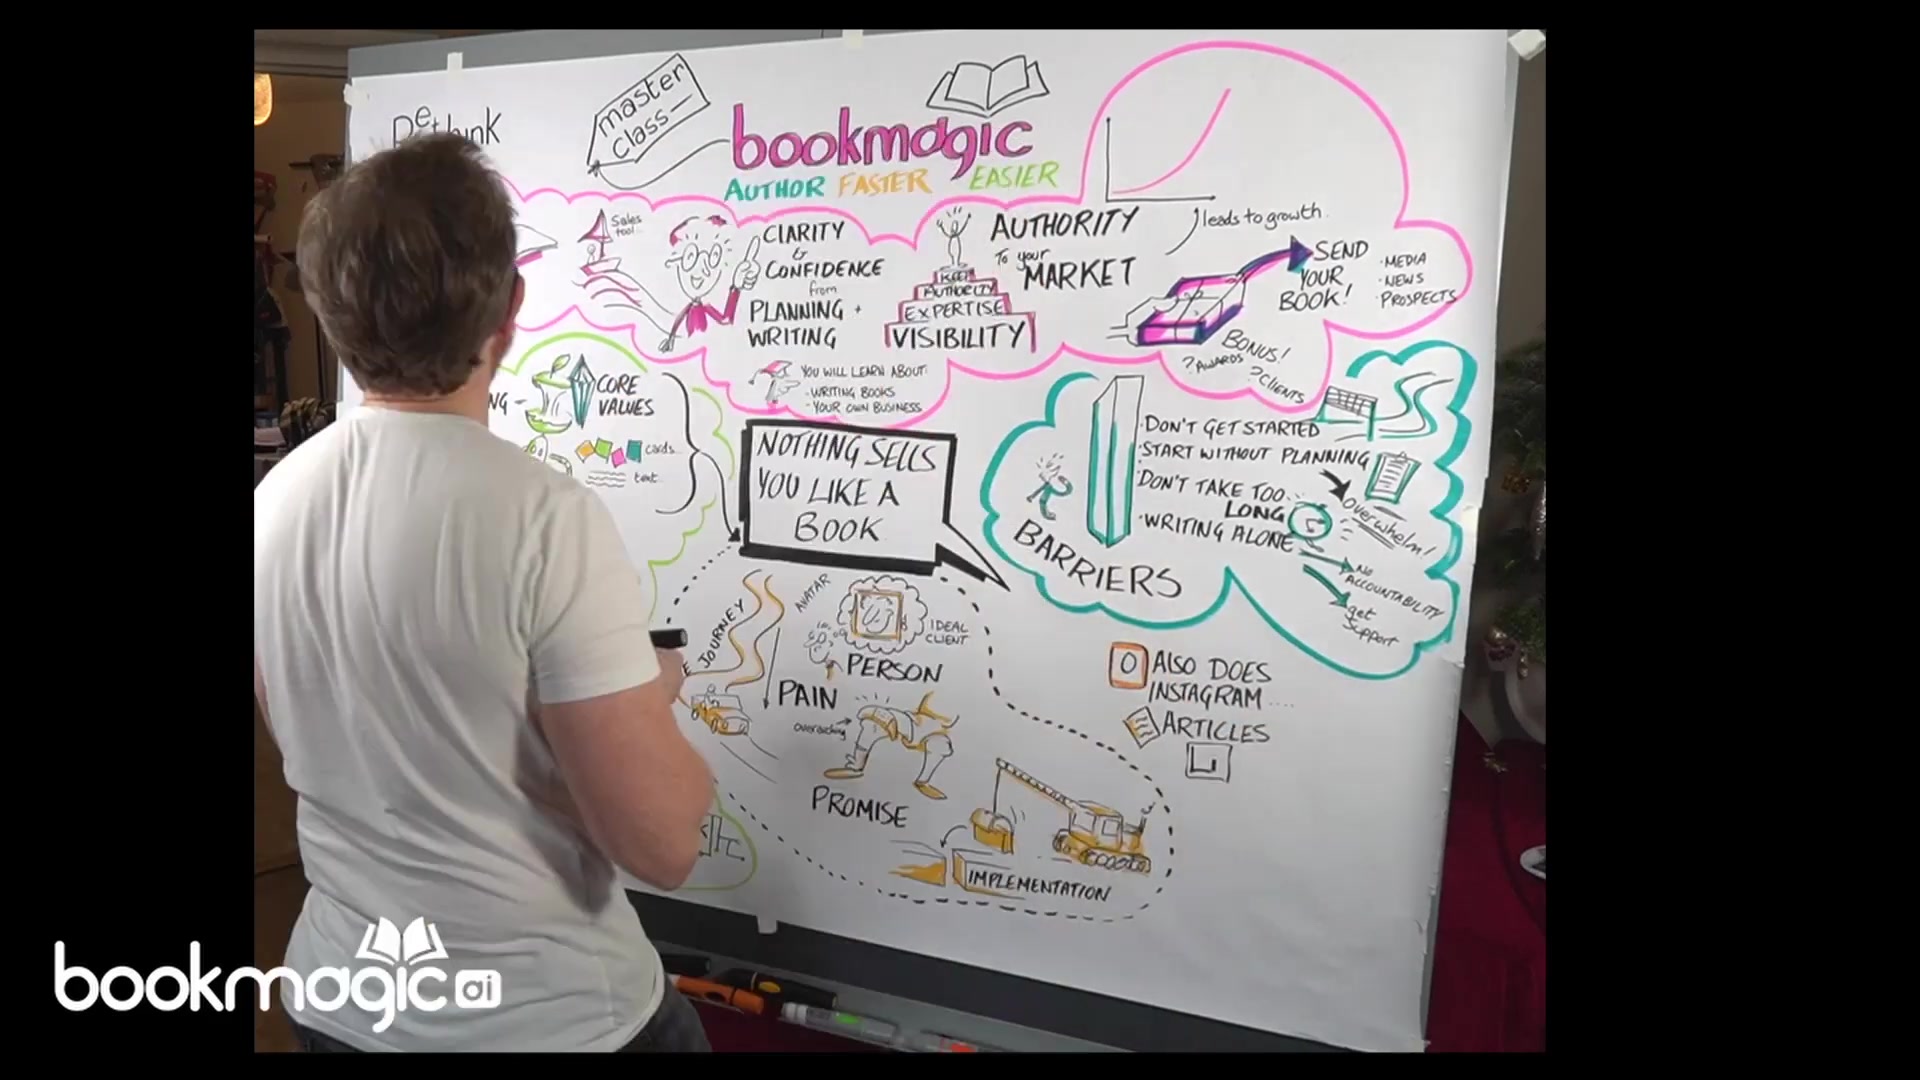 Rethink
master
class
bookmagic
AUTHOR FASTER EASIER
Sales
tool...
CLARITY
&
CONFIDENCE
from
PLANNING +
WRITING
YOU WILL LEARN ABOUT:
· WRITING BOOKS
· YOUR OWN BUSINESS
AUTHORITY
To your
MARKET
AUTHORITY
EXPERTISE
VISIBILITY
leads to growth.
SEND
YOUR
BOOK!
· MEDIA
· NEWS
· PROSPECTS
BONUS!
? AWARDS
? CLIENTS
NG -
CORE
VALUES
cards...
text...
NOTHING SELLS
YOU LIKE A
BOOK
BARRIERS
· DON'T GET STARTED
· START WITHOUT PLANNING
Overwhelm!
· DON'T TAKE TOO...
LONG
· WRITING ALONE
NO
ACCOUNTABILITY
get
support
E JOURNEY
AVATAR
IDEAL
CLIENT
PERSON
PAIN
overarching
PROMISE
IMPLEMENTATION
ALSO DOES
INSTAGRAM ....
ARTICLES
bookmagic ai